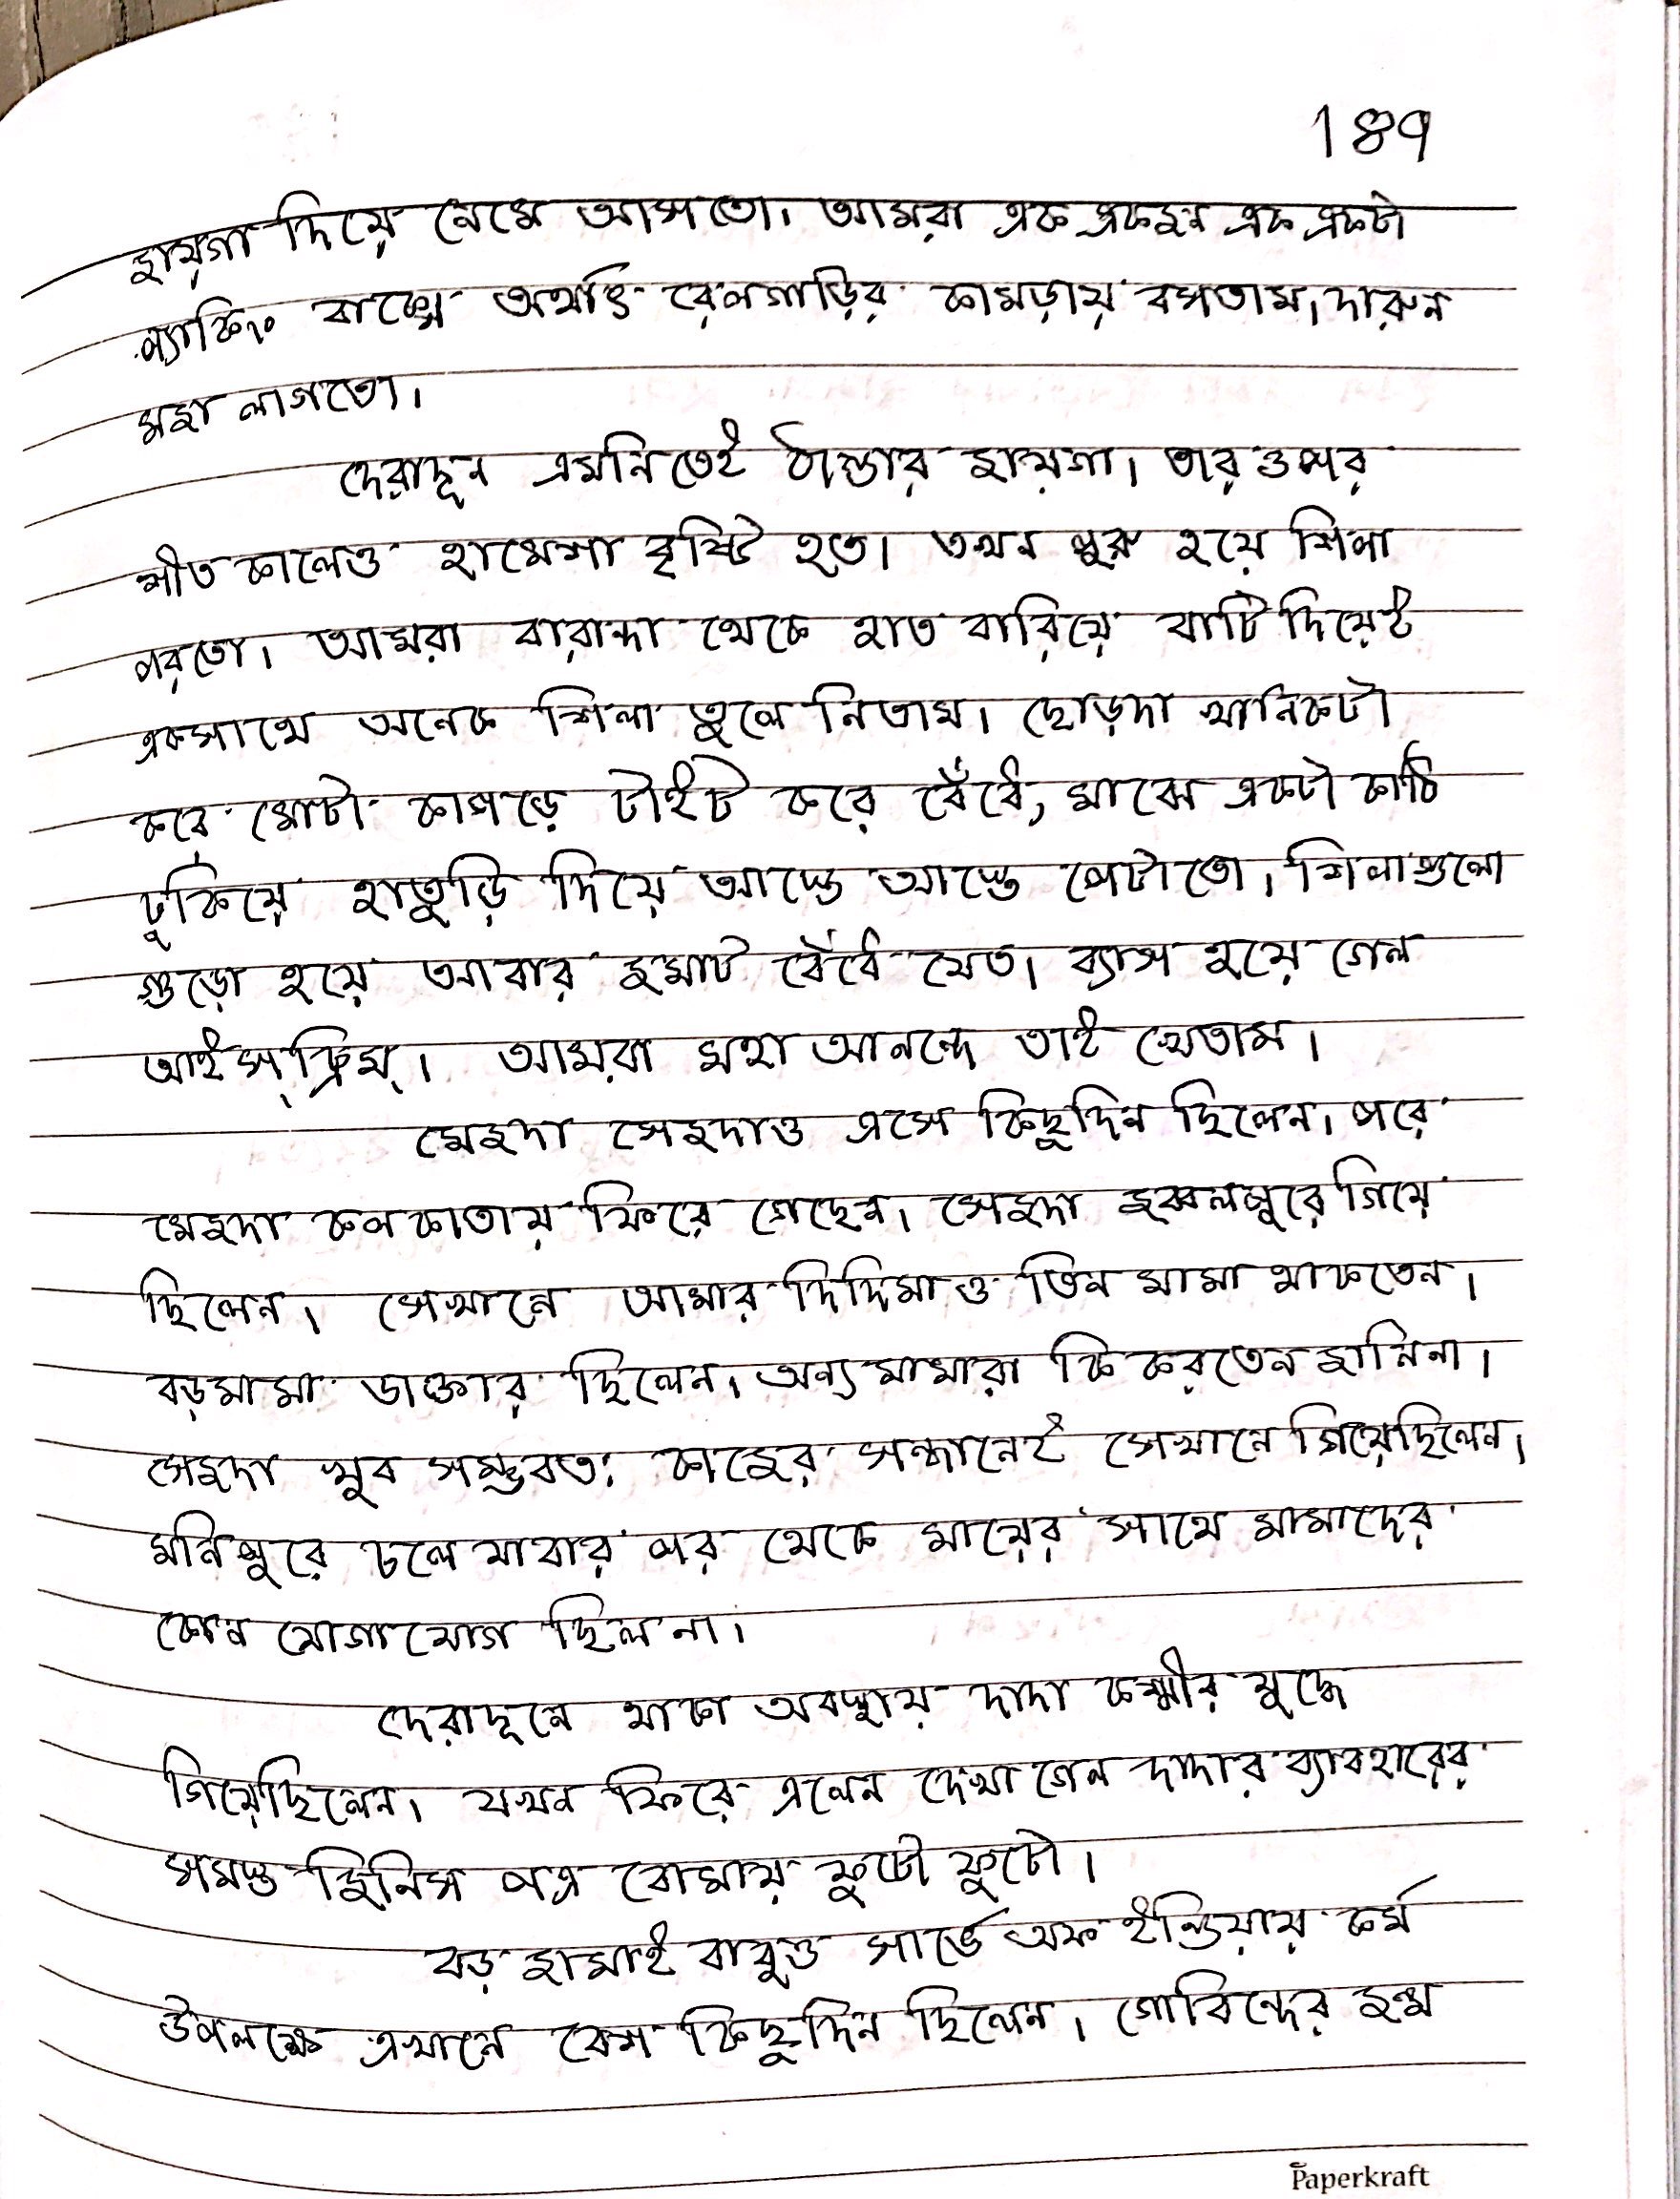 ১৪৭
জায়গা দিয়ে নেমে আসতো। আমরা এক একজন এক একটা
প্যাকিং বাক্সে অর্থাৎ রেলগাড়ির কামড়ায় বসতাম। দারুন
মজা লাগতো।
দেরাদূন এমনিতেই ঠান্ডার জায়গা। তার ওপর
শীত কালেও হামেশা বৃষ্টি হত। তখন শুরু হয়ে শিলা
পরতো। আমরা বারান্দা থেকে হাত বারিয়ে বাটি দিয়েই
একসাথে অনেক শিলা তুলে নিতাম। ছোড়দা খানিকটা
করে মোটা কাপড়ে টাইট করে বেঁধে, মাঝে একটা কাঠি
ঢুকিয়ে হাতুড়ি দিয়ে আস্তে আস্তে পেটাতো। শিলাগুলো
গুড়ো হয়ে আবার জমাট বেঁধে যেত। ব্যাস হয়ে গেল
আইস্ক্রিম্। আমরা মহা আনন্দে তাই খেতাম।
মেজদা সেজদাও এসে কিছুদিন ছিলেন। পরে
মেজদা কলকাতায় ফিরে গেছেন। সেজদা জব্বলপুরে গিয়ে
ছিলেন। সেখানে আমার দিদিমা ও তিন মামা থাকতেন।
বড়মামা ডাক্তার ছিলেন। অন্য মামারা কি করতেন জানিনা।
সেজদা খুব সম্ভবতঃ কাজের সন্ধানেই সেখানে গিয়েছিলেন।
মনিপুরে চলে যাবার পর থেকে মায়ের সাথে মামাদের
কোন যোগাযোগ ছিল না।
দেরাদূনে থাকা অবস্থায় দাদা কাশ্মীর যুদ্ধে
গিয়েছিলেন। যখন ফিরে এলেন দেখা গেল দাদার ব্যাবহারের
সমস্ত জিনিস পত্র বোমায় ফুটো ফুটো।
বড় জামাই বাবুও সার্ভে অফ ইন্ডিয়ায় কর্ম
উপলক্ষে এখানে বেশ কিছুদিন ছিলেন। গোবিন্দের জন্ম
Paperkraft